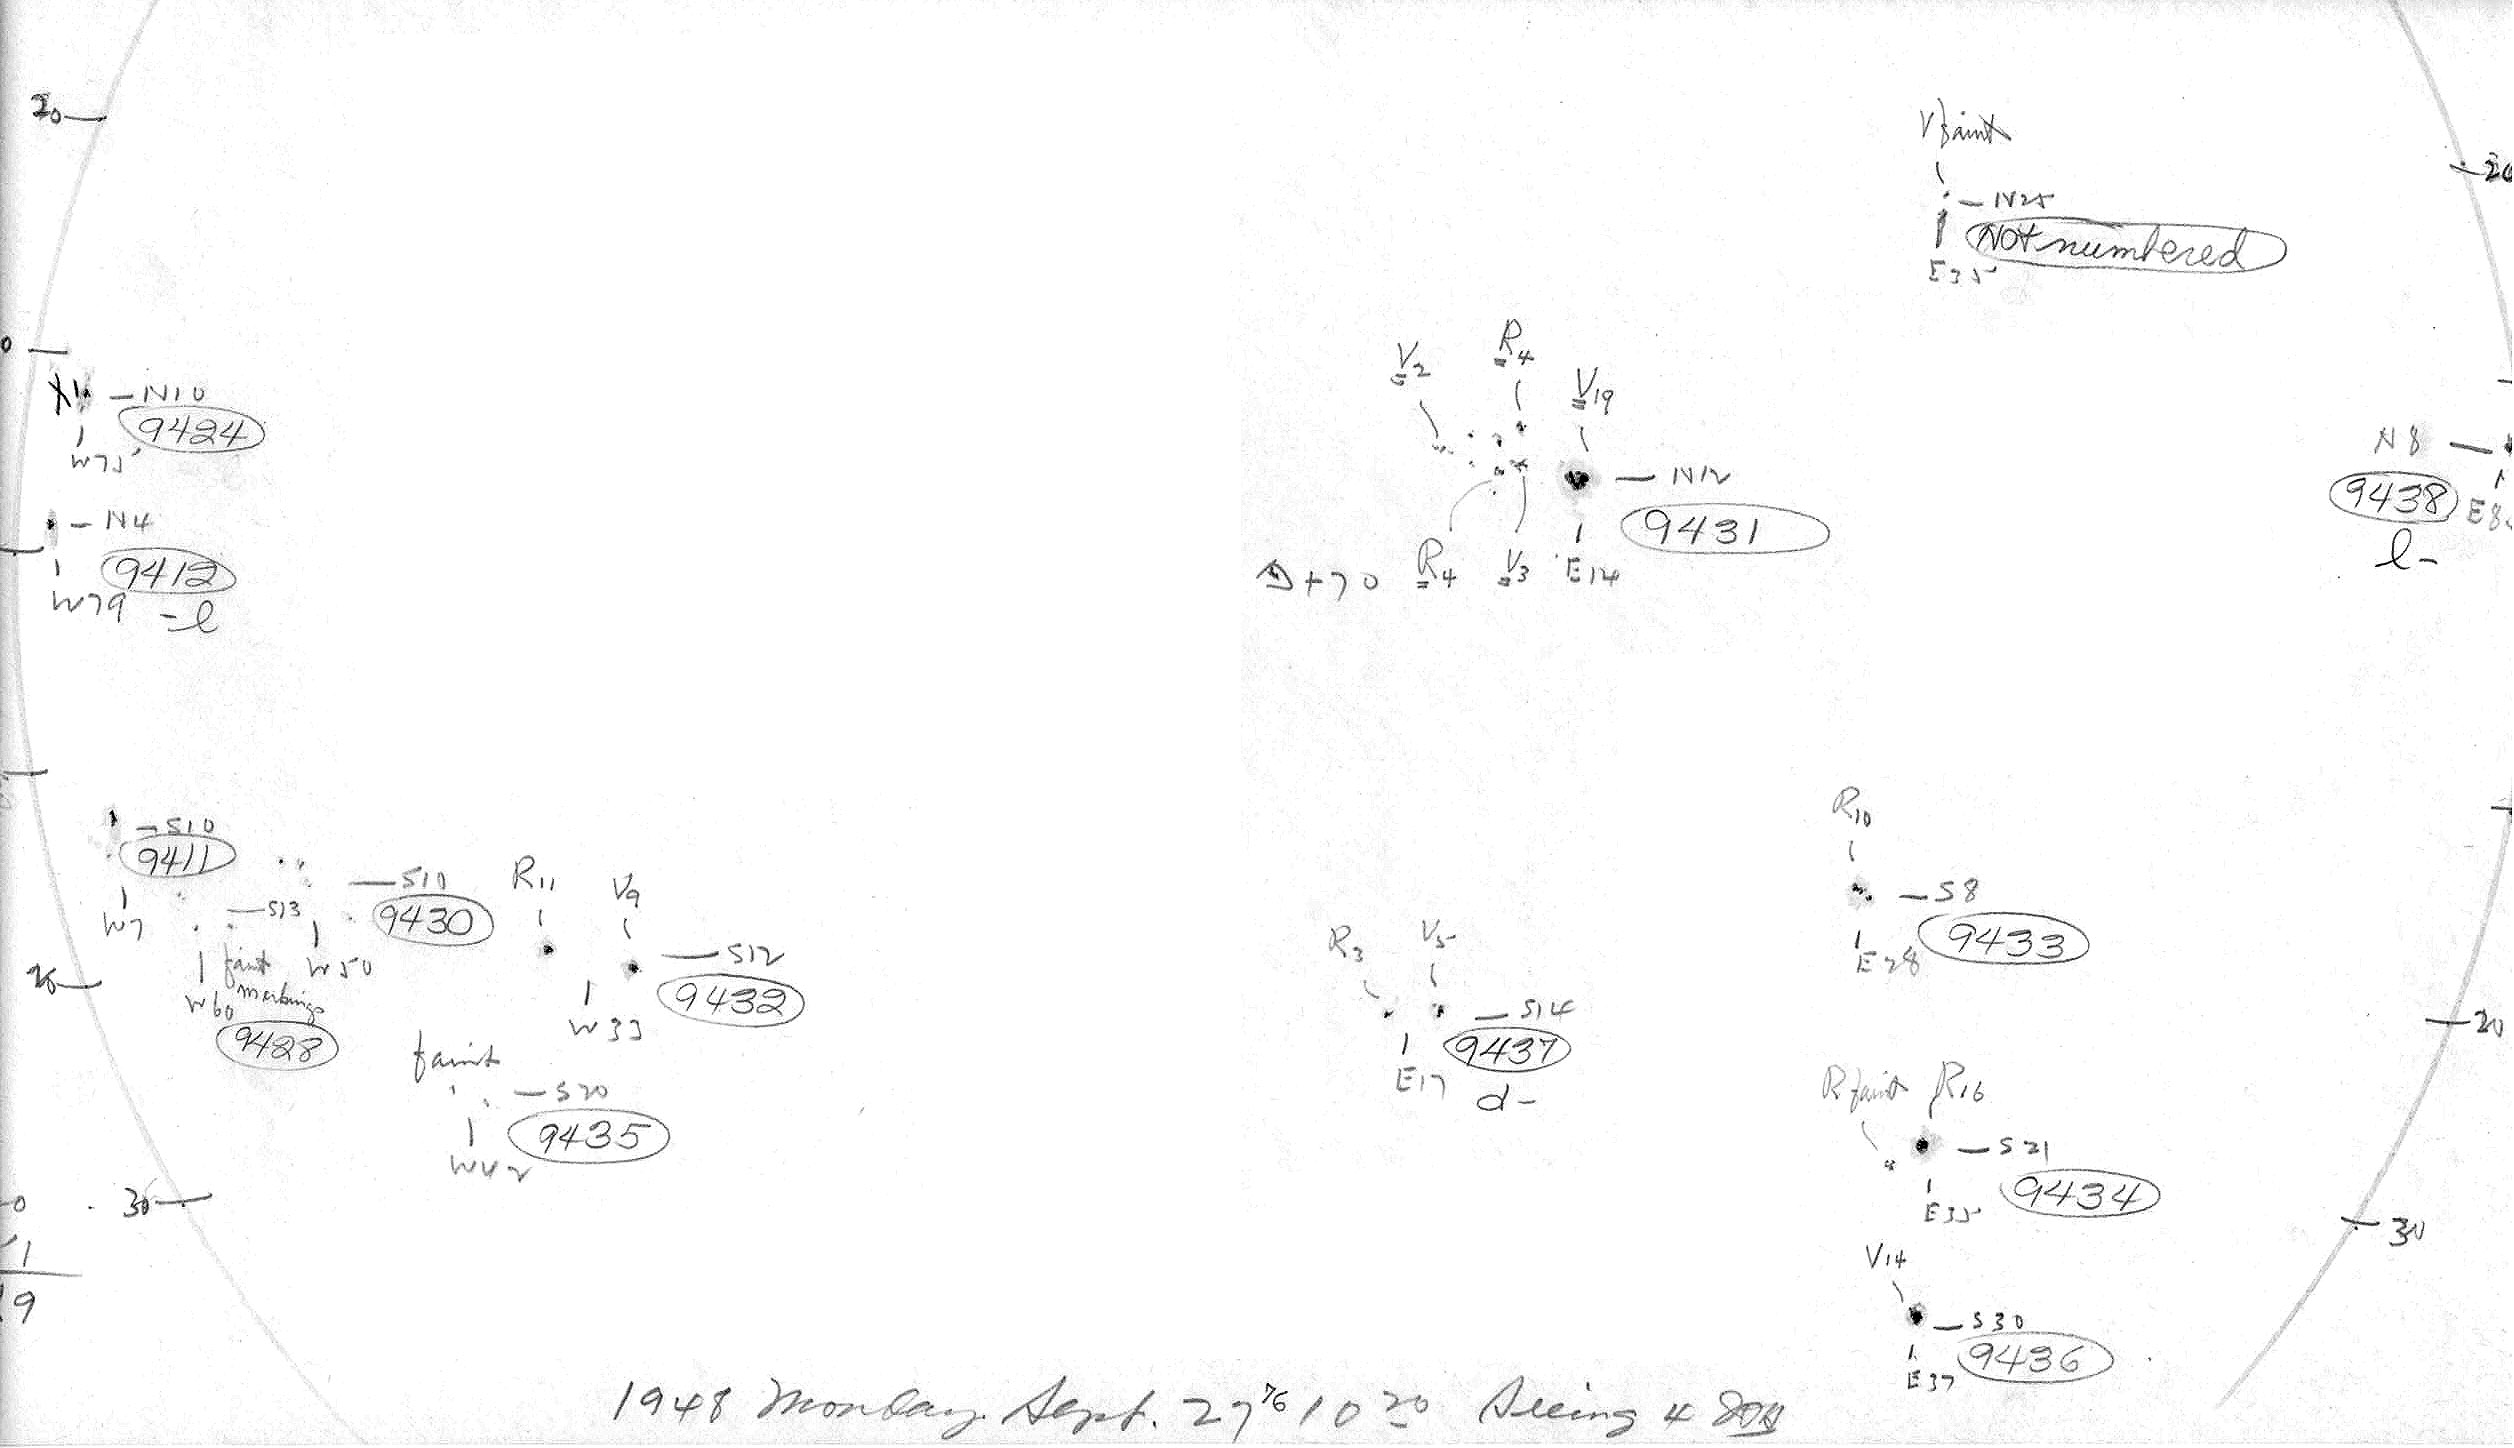 20
V faint
20
N25
Not numbered
E35
0
R4
V2
V19
N10
9424
W75
N8
9438
l-
N12
9431
N4
9412
W79
-l
+70
R4
V3
E14
R10
S10
9411
W7
S10
9430
R11
V9
S8
9433
E28
S13
faint
markings
W60
W50
9428
S12
9432
W33
R3
V5
S14
9437
E17
d-
20
faint
S20
9435
W42
R faint
R16
S21
9434
E35
30
30
V14
S30
9436
E37
1
19
1948 Monday Sept. 27 10 20 Seeing 4